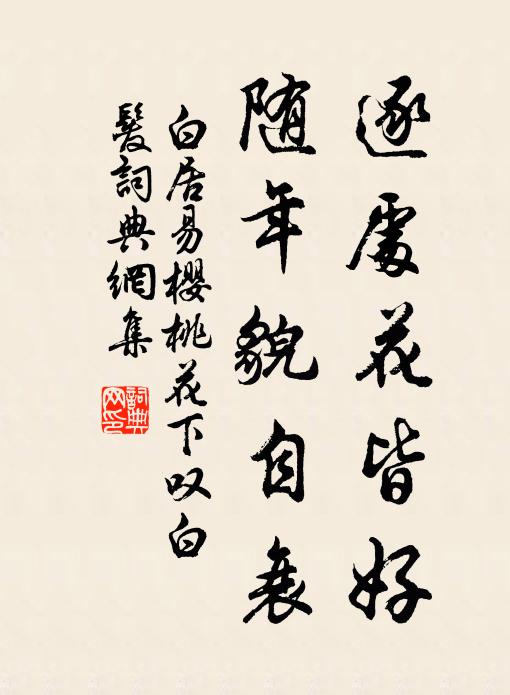 逐處花皆好
随年貌自衰
白居易櫻桃花下叹白
髮詞典網集
詞典网印